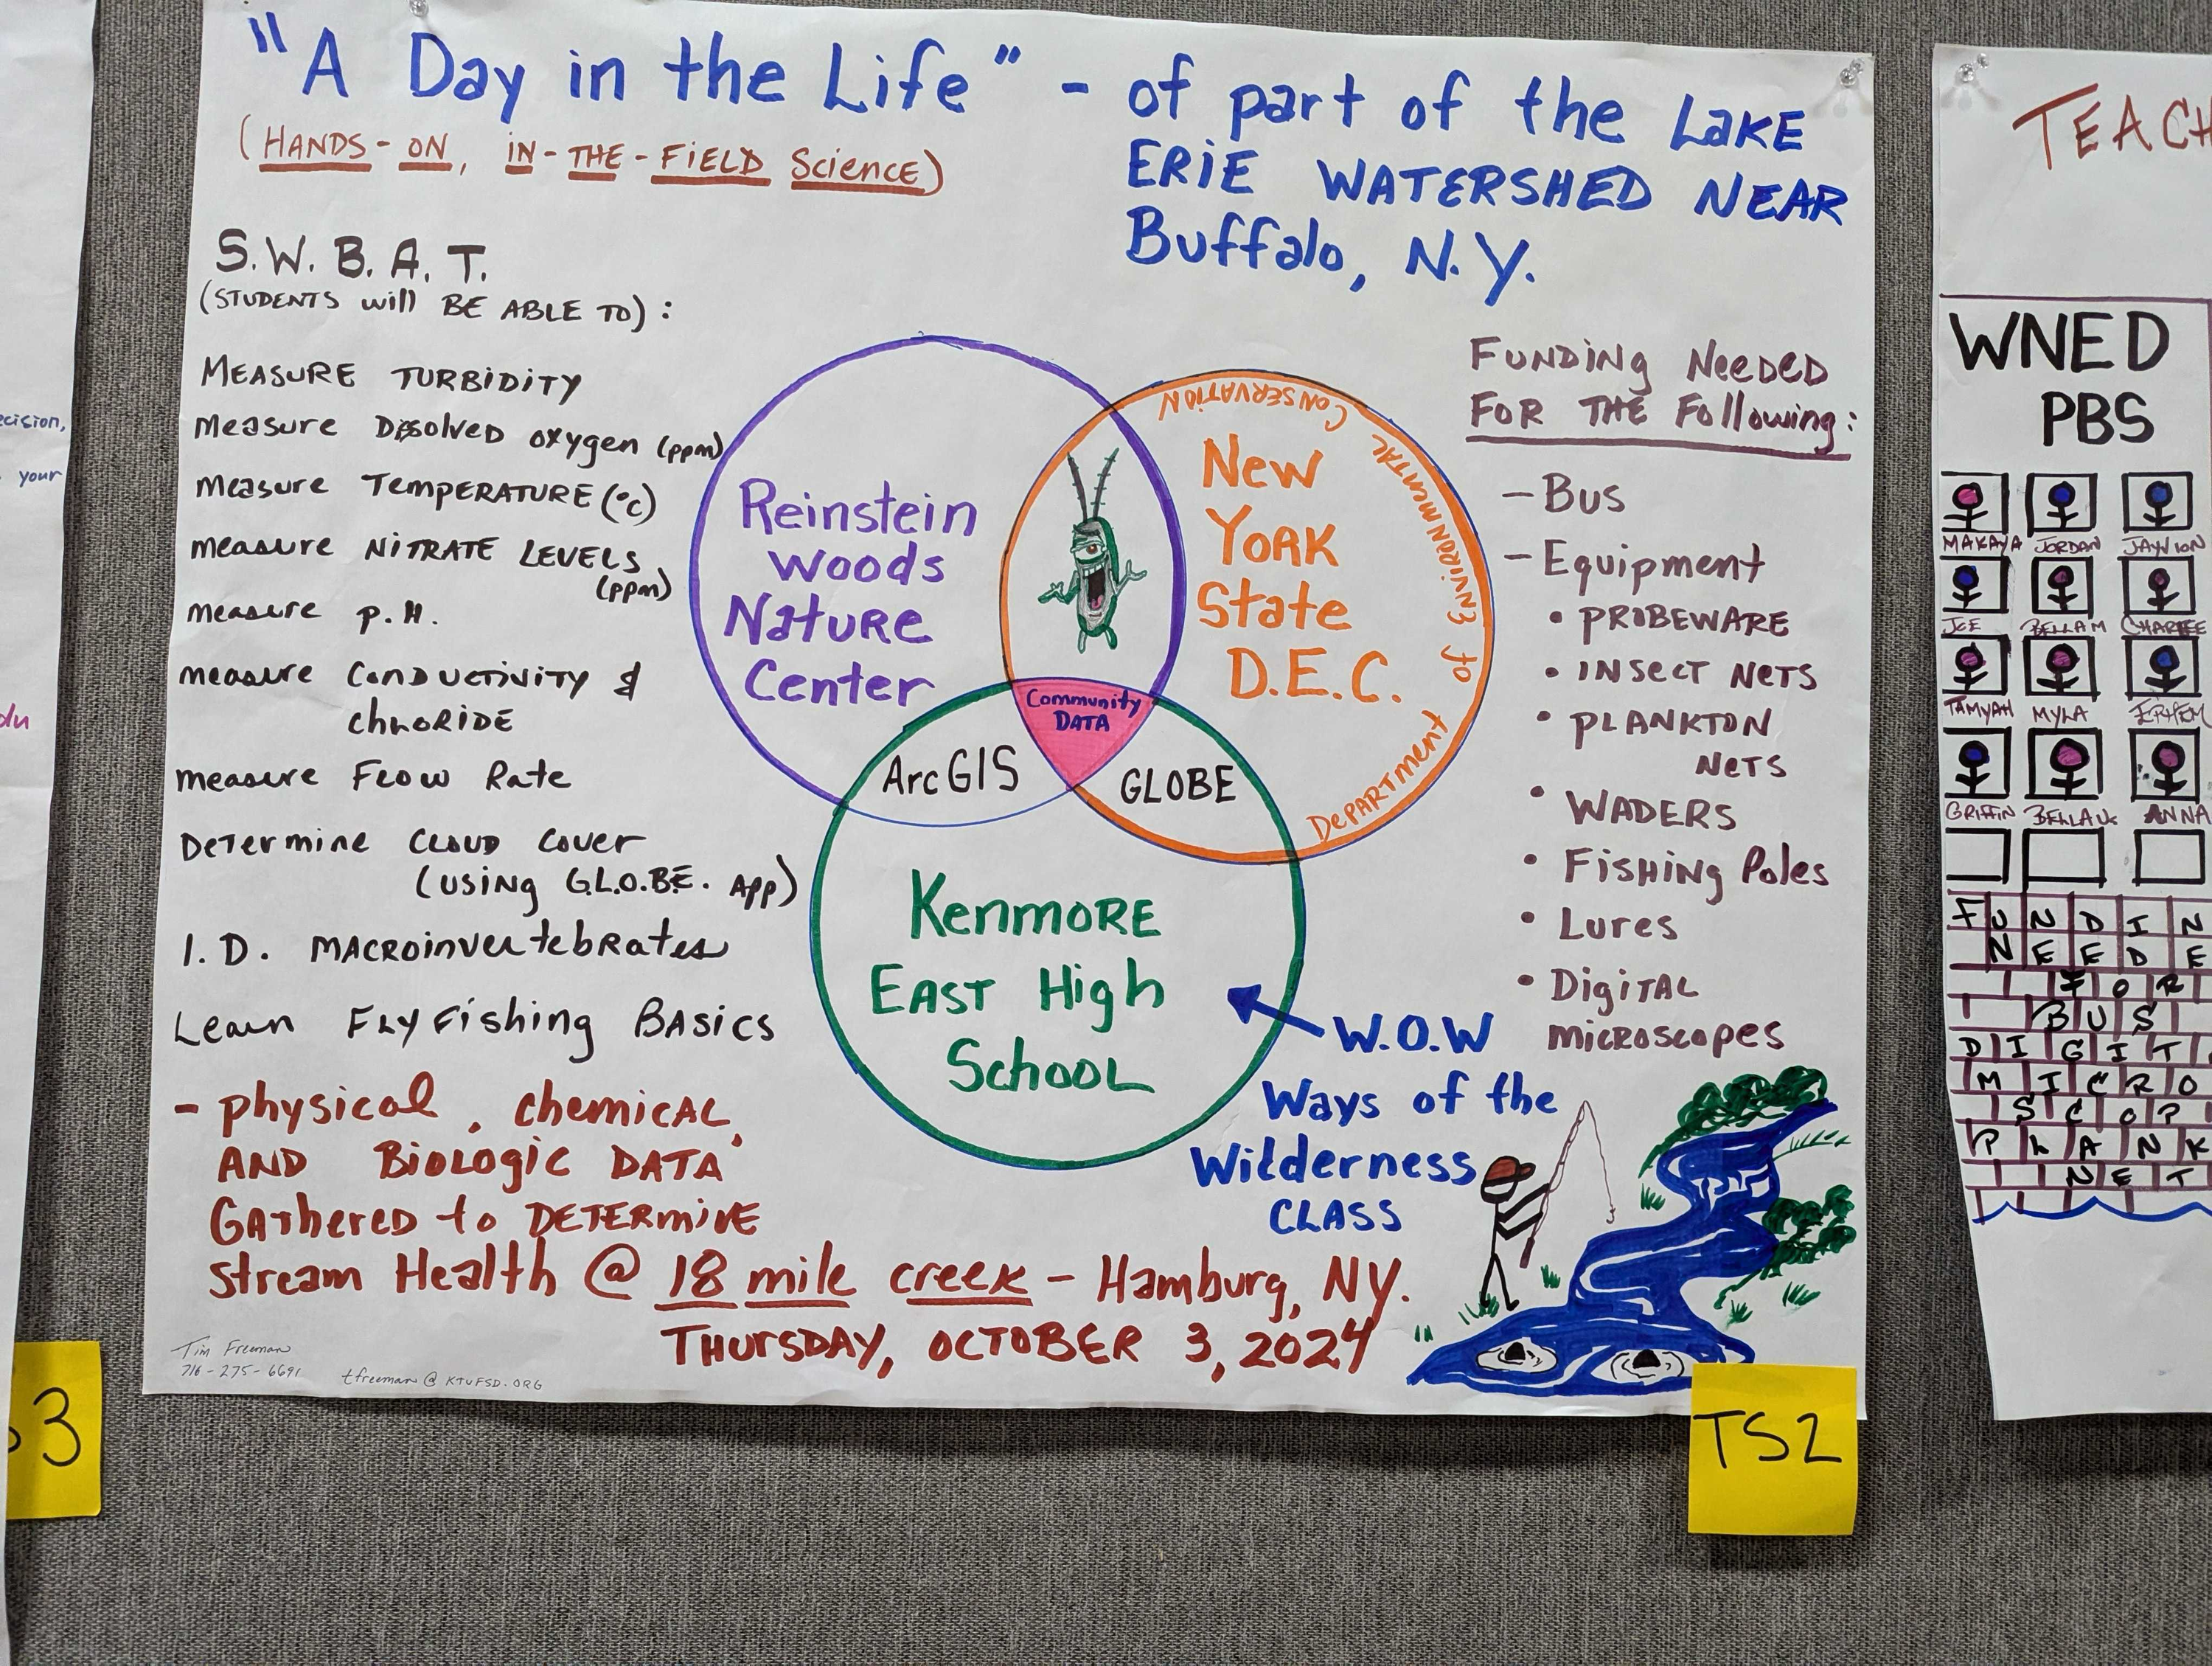 "A Day in the Life" - of part of the Lake
Erie Watershed near
Buffalo, N.Y.
(Hands-on, in-the-Field Science)
S.W.B.A.T.
(Students will be able to):
Measure turbidity
Measure Dissolved oxygen (ppm)
Measure Temperature (°c)
measure Nitrate Levels
(ppm)
measure p.H.
measure Conductivity &
chloride
measure Flow Rate
Determine Cloud Cover
(using G.L.O.B.E. App)
I.D. macroinvertebrates
Learn Fly Fishing Basics
- physical, chemical,
and Biologic Data
Gathered to Determine
stream Health @ 18 mile creek - Hamburg, NY.
Thursday, October 3, 2024
Tim Freeman
716-275-6691
tfreeman@KTUFSD.ORG
Reinstein
Woods
Nature
Center
New
York
State
D.E.C.
Department of Environmental Conservation
Community
Data
ArcGIS
GLOBE
Kenmore
East High
School
W.O.W
Ways of the
Wilderness
Class
Funding Needed
for the Following:
- Bus
- Equipment
• Probeware
• insect Nets
• Plankton
Nets
• Waders
• Fishing Poles
• Lures
• Digital
microscopes
TS2
3
ecision,
your
du
TEACH
WNED
PBS
MAKAYA JORDAN JAYVION
JOE BELLA M CHARLEE
TAMYAH MYLA
GRIFFIN BELLA ANNA
FUNDIN
NEEDE
FOR
BUS
DIGIT
MICRO
SCOP
PLANK
NET